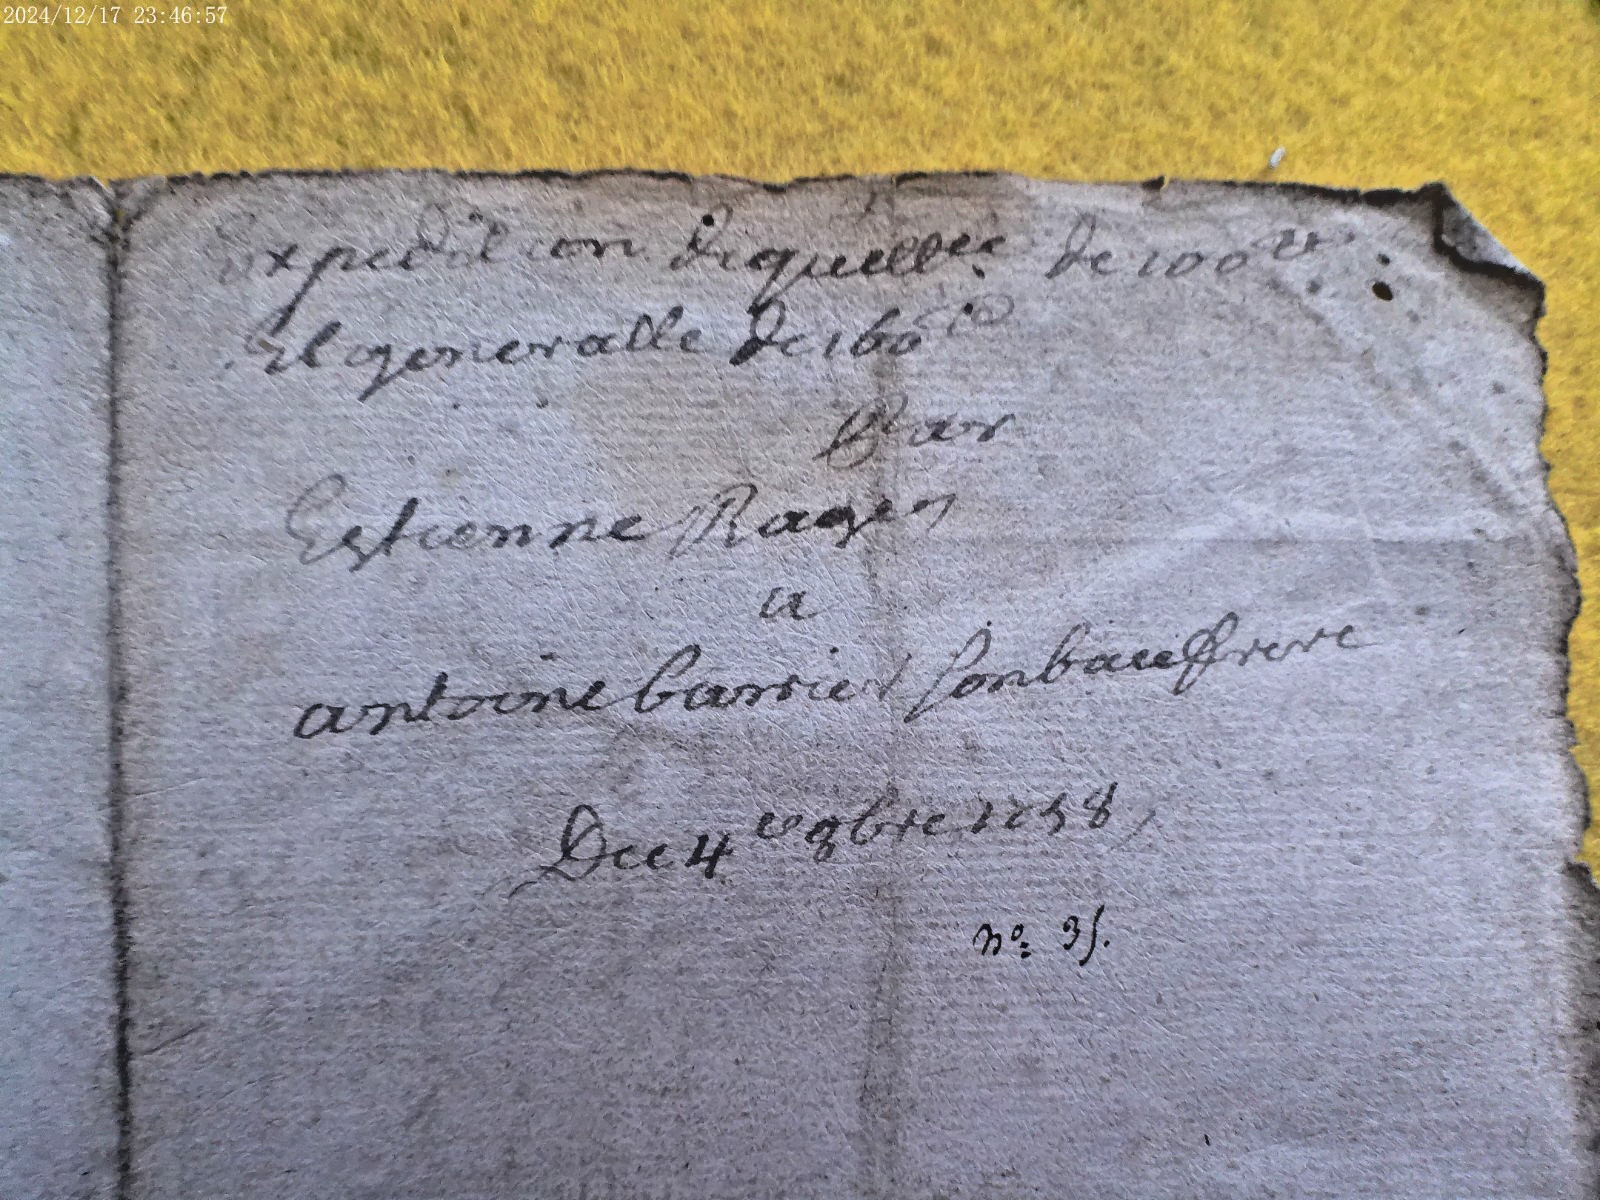 2024/12/17 23:46:57
Expedition de quitt.ce de 100
Et generalle de 160
Par
Estienne Rage
a
antoine barrier son baufrere
Du 4 9bre 1758
n.o 35.